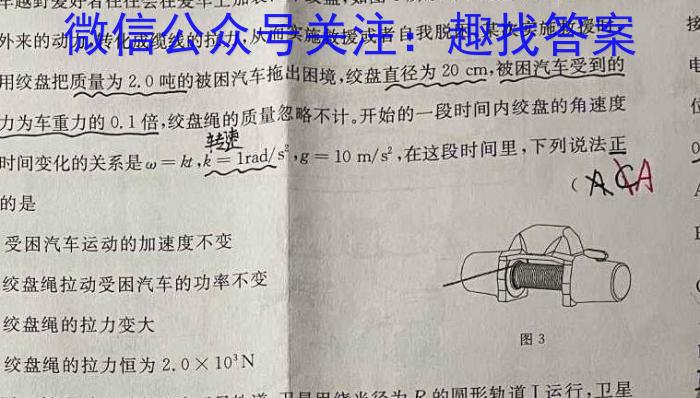 微信公众号关注：趣找答案
外来的动力转化成缆线的拉力,从而实施救援或者自我脱困.某次实施救援时,
用绞盘把质量为 2.0 吨的被困汽车拖出困境,绞盘直径为 20 cm,被困汽车受到的
力为车重力的 0.1 倍,绞盘绳的质量忽略不计。开始的一段时间内绞盘的角速度
转速
时间变化的关系是 ω=kt,k=1rad/s²,g=10 m/s²,在这段时间里,下列说法正
的是
(A C A
受困汽车运动的加速度不变
绞盘绳拉动受困汽车的功率不变
绞盘绳的拉力变大
绞盘绳的拉力恒为 2.0×10³N
图 3
的圆形轨道Ⅰ运行,卫星